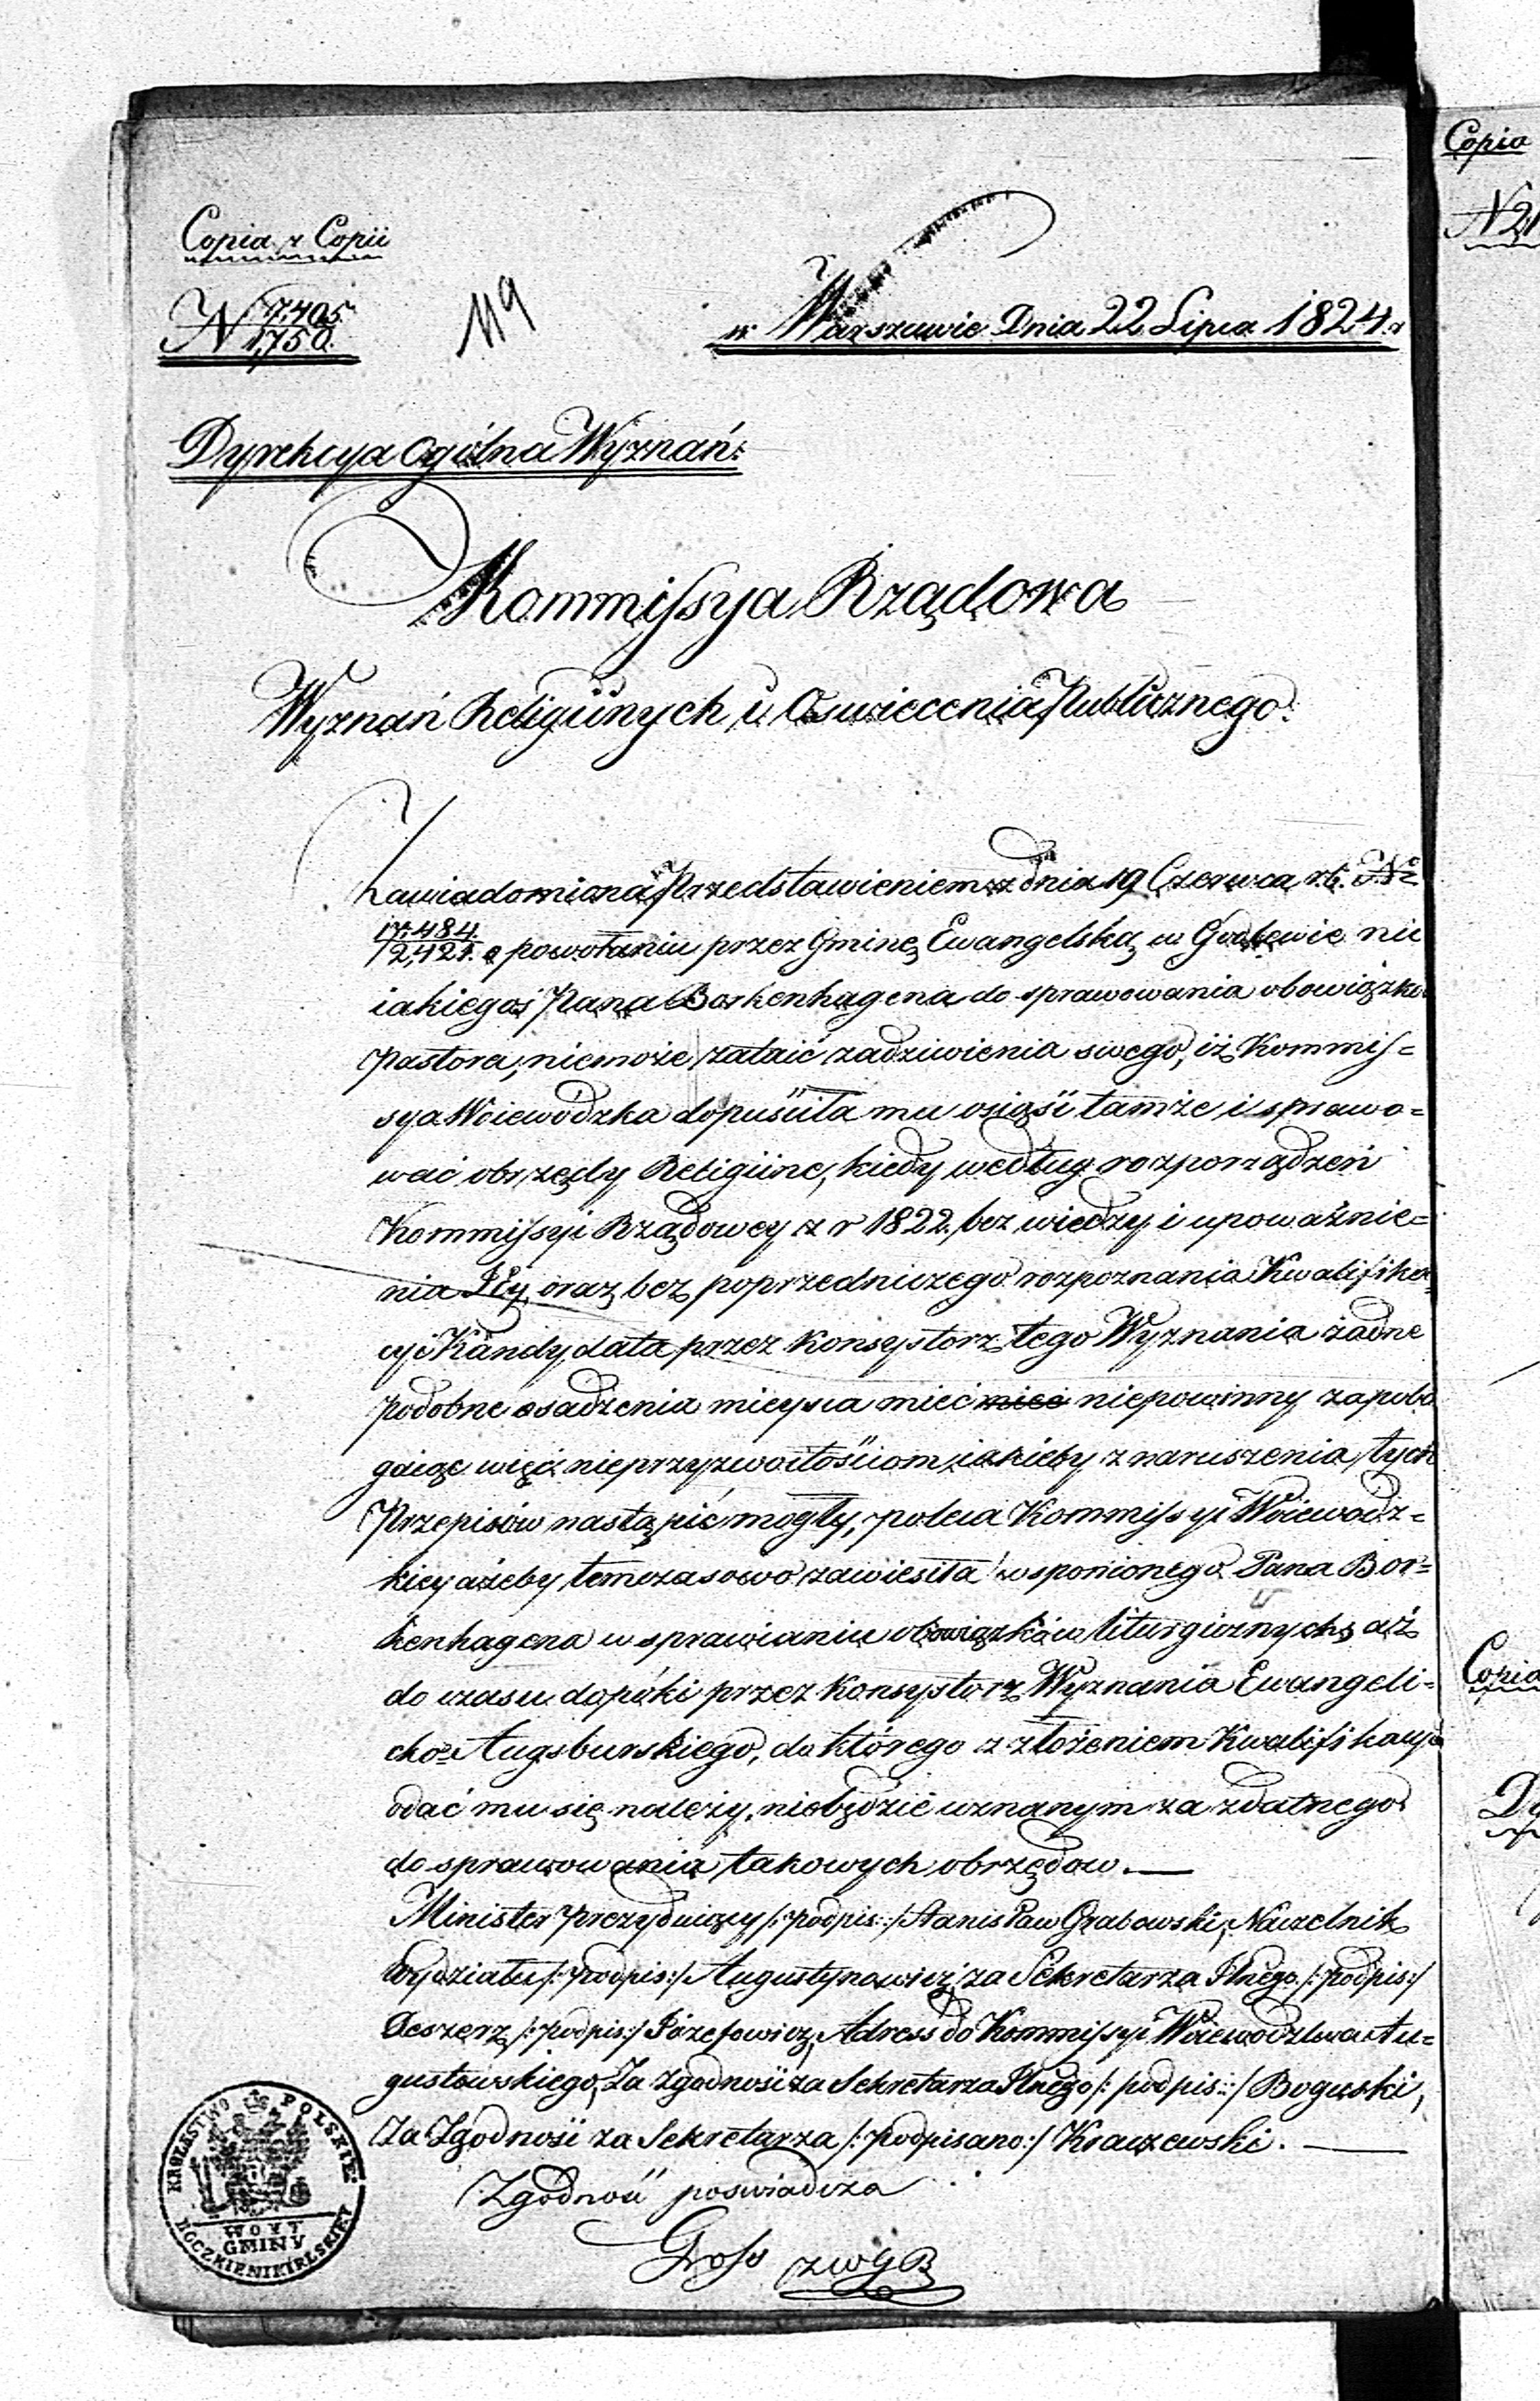 Copia z Copii
N 7,405.
1,750.
119
w Warszawie Dnia 22 Lipca 1824 r
Dyrekcya Ogólna Wyznań.
Kommissya Rządowa
Wyznań Religiinych i Oswiecenia Publicznego.
Zawiadomiona Przedstawieniem z dnia 19 Czerwca r. b. No
17,484.
2,421. o powołaniu przez Gminę Ewangelską w nie
iakiegoś Pana Borkenhagena do sprawowania obowiązku
Pastora, niemoże zataić zadziwienia swego, iż Kommis=
sya Woiewódzka dopuściła mu osiąść tamże i sprawo=
wać obrzędy Religiine, kiedy według rozporządzeń
Kommissyi Rządowey z r 1822. bez wiedzy i upoważnie=
nia Jey, oraz bez poprzedniczego rozpoznania Kwalifika=
cyi Kandydata przez Konsystorz tego Wyznania żadne
podobne osadzenia mieysca mieć mieć niepowinny zapobe
gaiąc więc nieprzyzwoitościom iakieby z naruszenia tych
Przepisów nastąpić mogły, poleca Kommissyi Woiewódz=
kiey ażeby tymczasowo zawiesiła wspomionego Pana Bor=
kenhagena w sprawianiu obowiązków liturgicznych aż
do czasu dopóki przez Konsystorz Wyznania Ewangeli=
cko= Augsburskiego, do którego z złożeniem Kwalifikacyi
udać mu się należy, niebędzie uznanym za zdatnego
do sprawowania takowych obrzędow. —
Minister Prezyduiący /:podpis:/ Stanisław Grabowski, Naczelnik
Wydziału /:podpis:/ Augustynowicz za Sekretarza Jlnego /:podpis:/
/:podpis:/ Józefowicz, Adress do Kommissyi Woiewodztwa Au=
gustowskiego, Za Zgodność za Sekretarza Jlnego /:podpis:/ Boguski,
Za Zgodność za Sekretarza /:podpisano:/ Kraczewski. —
Zgodność poswiadcza
Gross zwGB
KROLESTWO POLSKIE
WOYT
GMINY
Copia
N 21
Copia
Dy